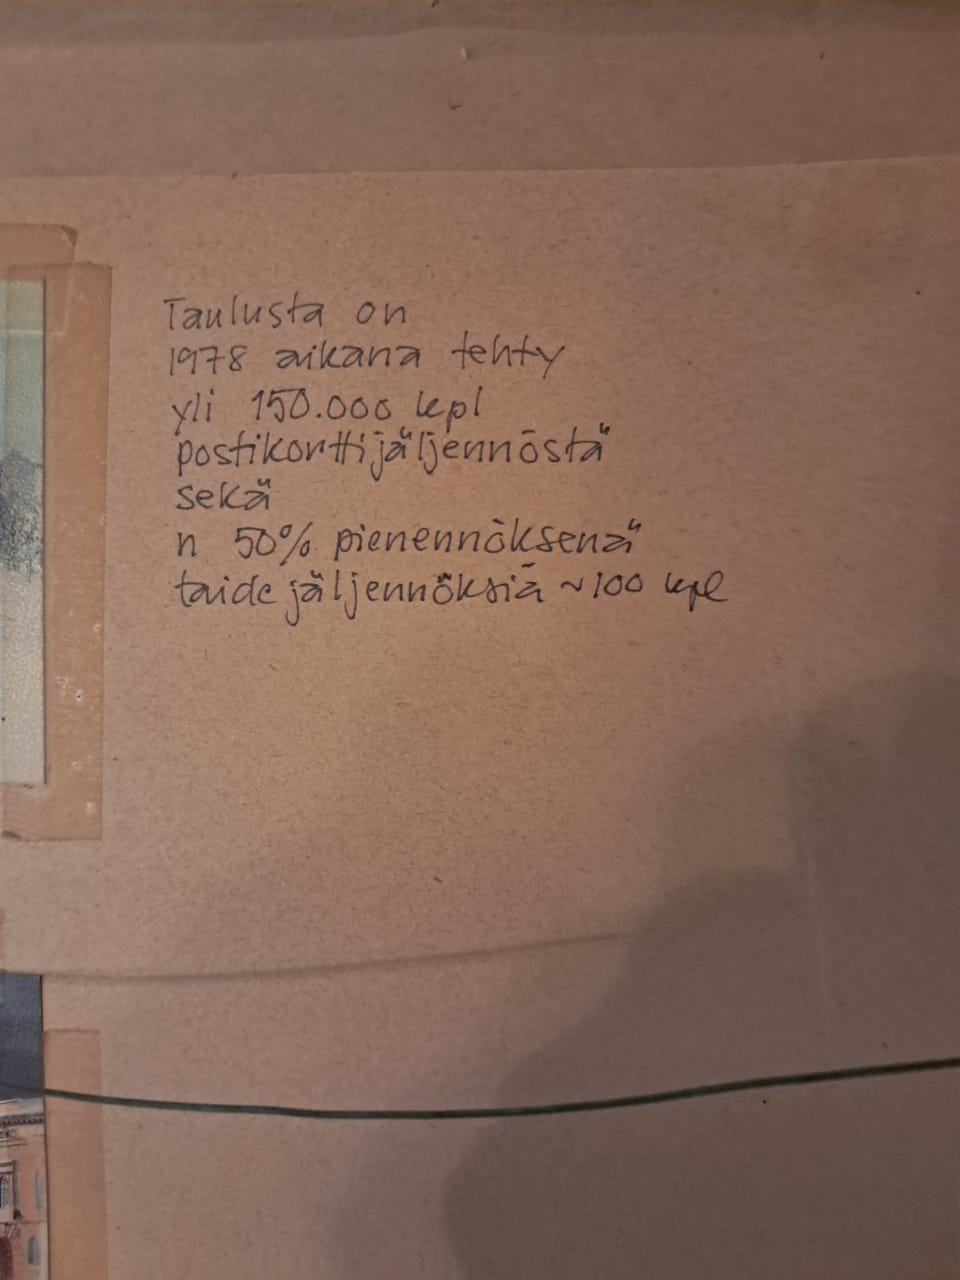 Taulusta on
1978 aikana tehty
yli 150.000 kpl
postikorttijäljennöstä
sekä
n 50% pienennöksenä
taidejäljennöksiä ~100 kpl